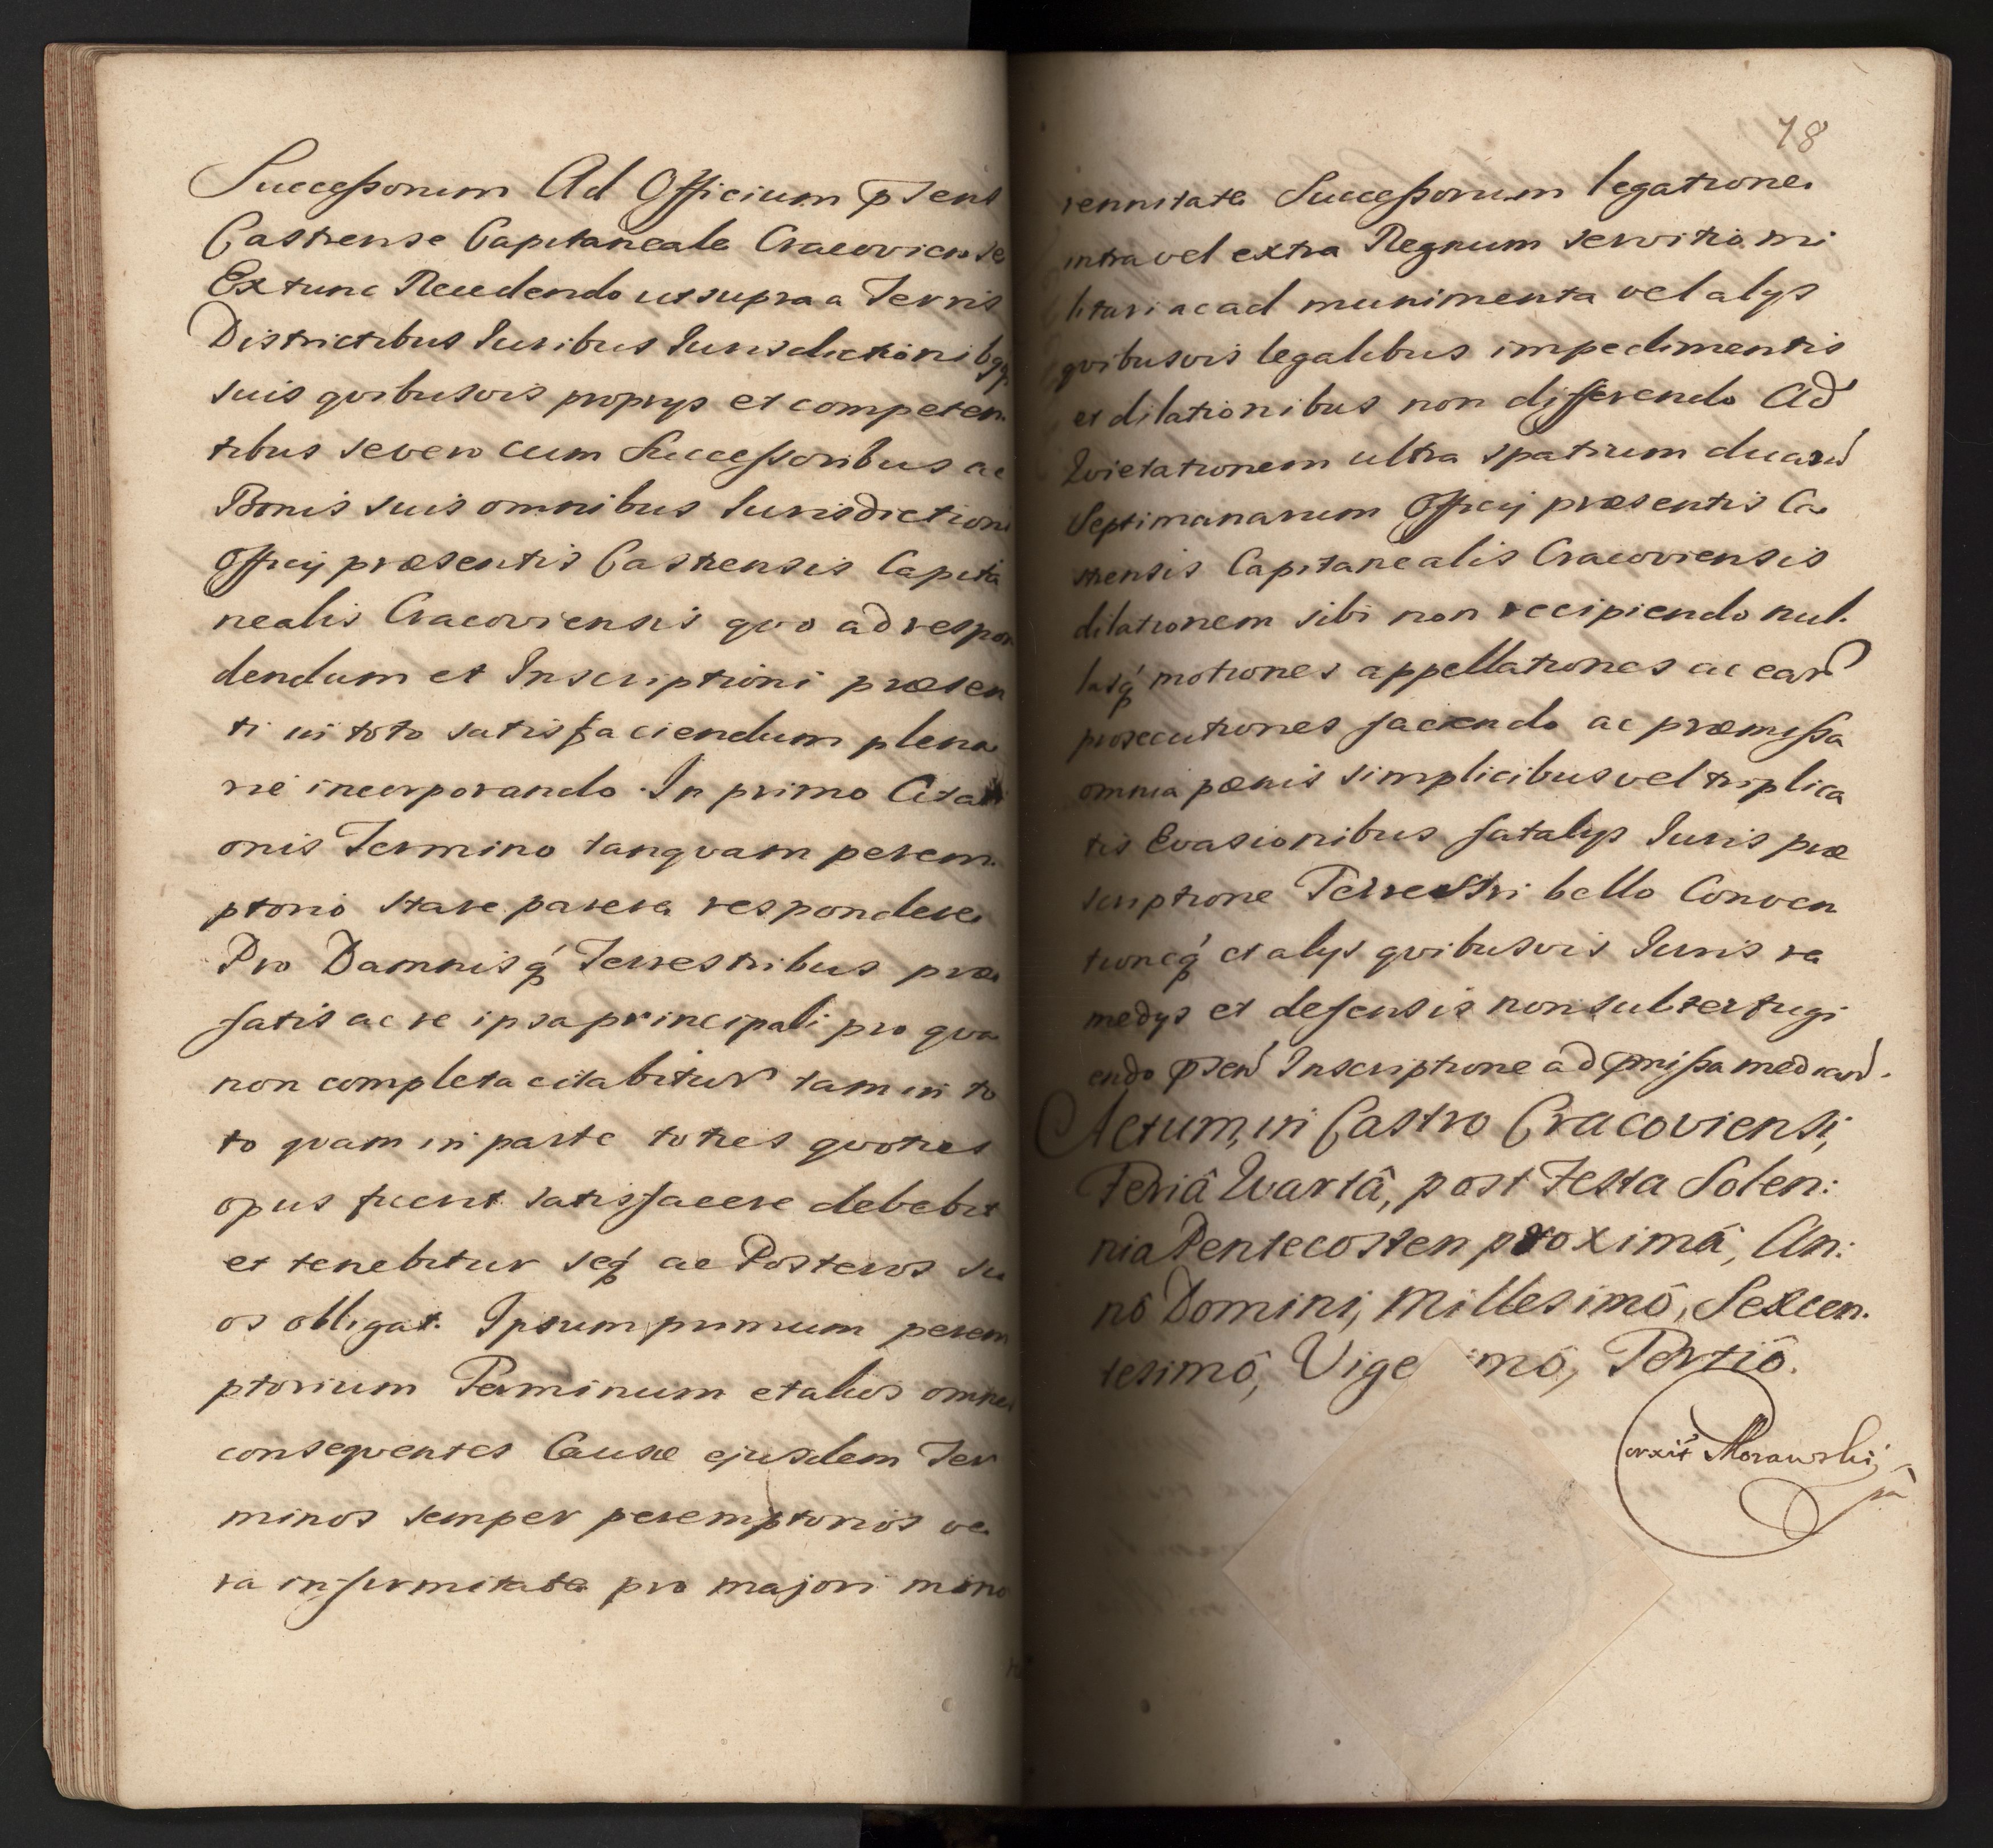 Successorum Ad Officium psens
Castrense Capitaneale Cracoviense
Ex tunc Recedendo ut supra a Terris
Districtibus Iuribus Iurisdictionibqꝫ
suis qvibusvis proprys et competen
tibus se vero cum Successoribus ac
Bonis suis omnibus Iurisdictioni
Officij præsentis Castrensis Capita
nealis Cracoviensis qvo ad respon
dendum et Inscriptioni præsen
ti in toto satisfaciendum plena
rie incorporando. In primo Citati
onis Termino tanqvam perem
ptorio stare parere respondere
Pro Damnisq́ Terrestribus præ
fatis ac re ipsa principali pro qva
non completa citabitur tam in to
to qvam in parte toties qvoties
opus fuerit satisfacere debebit
et tenebitur seq́ ac Posteros su
os obligat. Ipsum primum perem
ptorium Terminum et alios omnes
conseqventes Causæ ejusdem Ter
minos semper peremptorios ve
ra infirmitate pro majori mino
18
rennitate Successorum legatione
intra vel extra Regnum servitio mi
litari ac ad munimenta vel alys
qvibusvis legalibus impedimentis
et dilationibus non differendo Ad
Qvietationem ultra spatium duarū
Septimanarum Officij præsentis Ca
strensis Capitanealis Cracoviensis
dilationem sibi non recipiendo nul.
lasq́ motiones appellationes ac earū
prosecutiones faciendo ac præmissa
omnia pænis simplicibus vel triplica
tis Evasionibus fatalys Iuris præ
scriptione Terrestri bello Conven
tioneq́ et alys qvibusvis Iuris re
medys et defensis non subterfugi
endo psen Inscriptione ad pmissa median.
Actum, in Castro Cracoviensi,
Feriâ Qvartâ, post Festa Solen:
nia Pentecosten proximâ, An:
nô Domini, Millesimô, Sexcen.
tesimô, Vige imô, Tertiô.
corxit Morawski